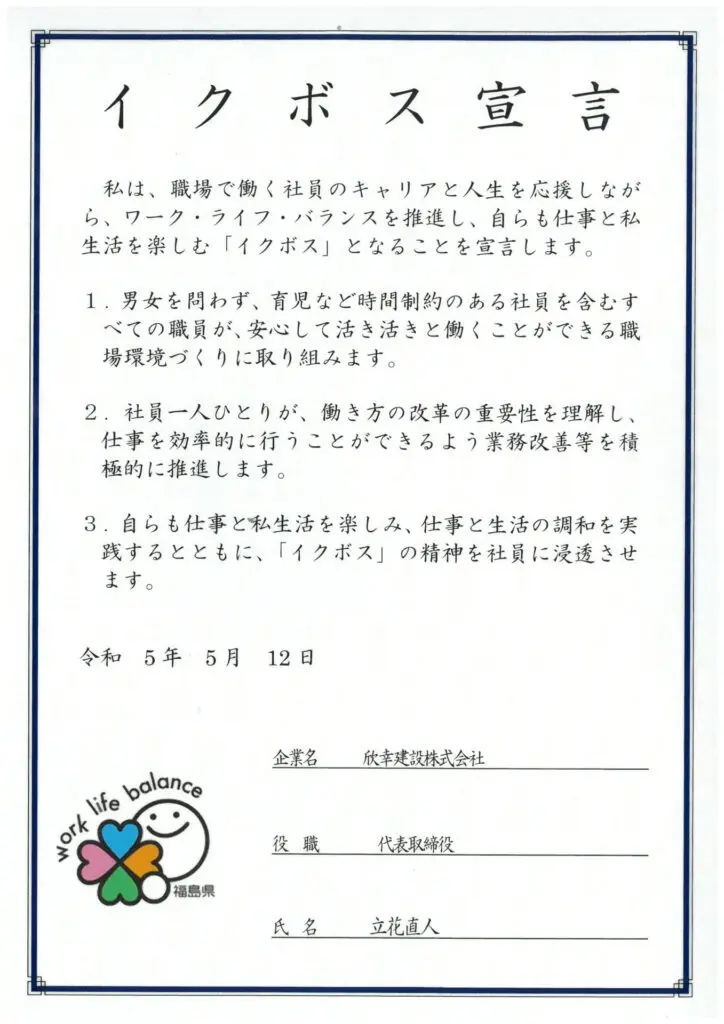 イクボス宣言
私は、職場で働く社員のキャリアと人生を応援しなが
ら、ワーク・ライフ・バランスを推進し、自らも仕事と私
生活を楽しむ「イクボス」となることを宣言します。
１．男女を問わず、育児など時間制約のある社員を含むす
べての職員が、安心して活き活きと働くことができる職
場環境づくりに取り組みます。
２．社員一人ひとりが、働き方の改革の重要性を理解し、
仕事を効率的に行うことができるよう業務改善等を積
極的に推進します。
３．自らも仕事と私生活を楽しみ、仕事と生活の調和を実
践するとともに、「イクボス」の精神を社員に浸透させ
ます。
令和　5年　5月　12日
企業名　欣幸建設株式会社
役　職　代表取締役
氏　名　立花直人
work life balance
福島県